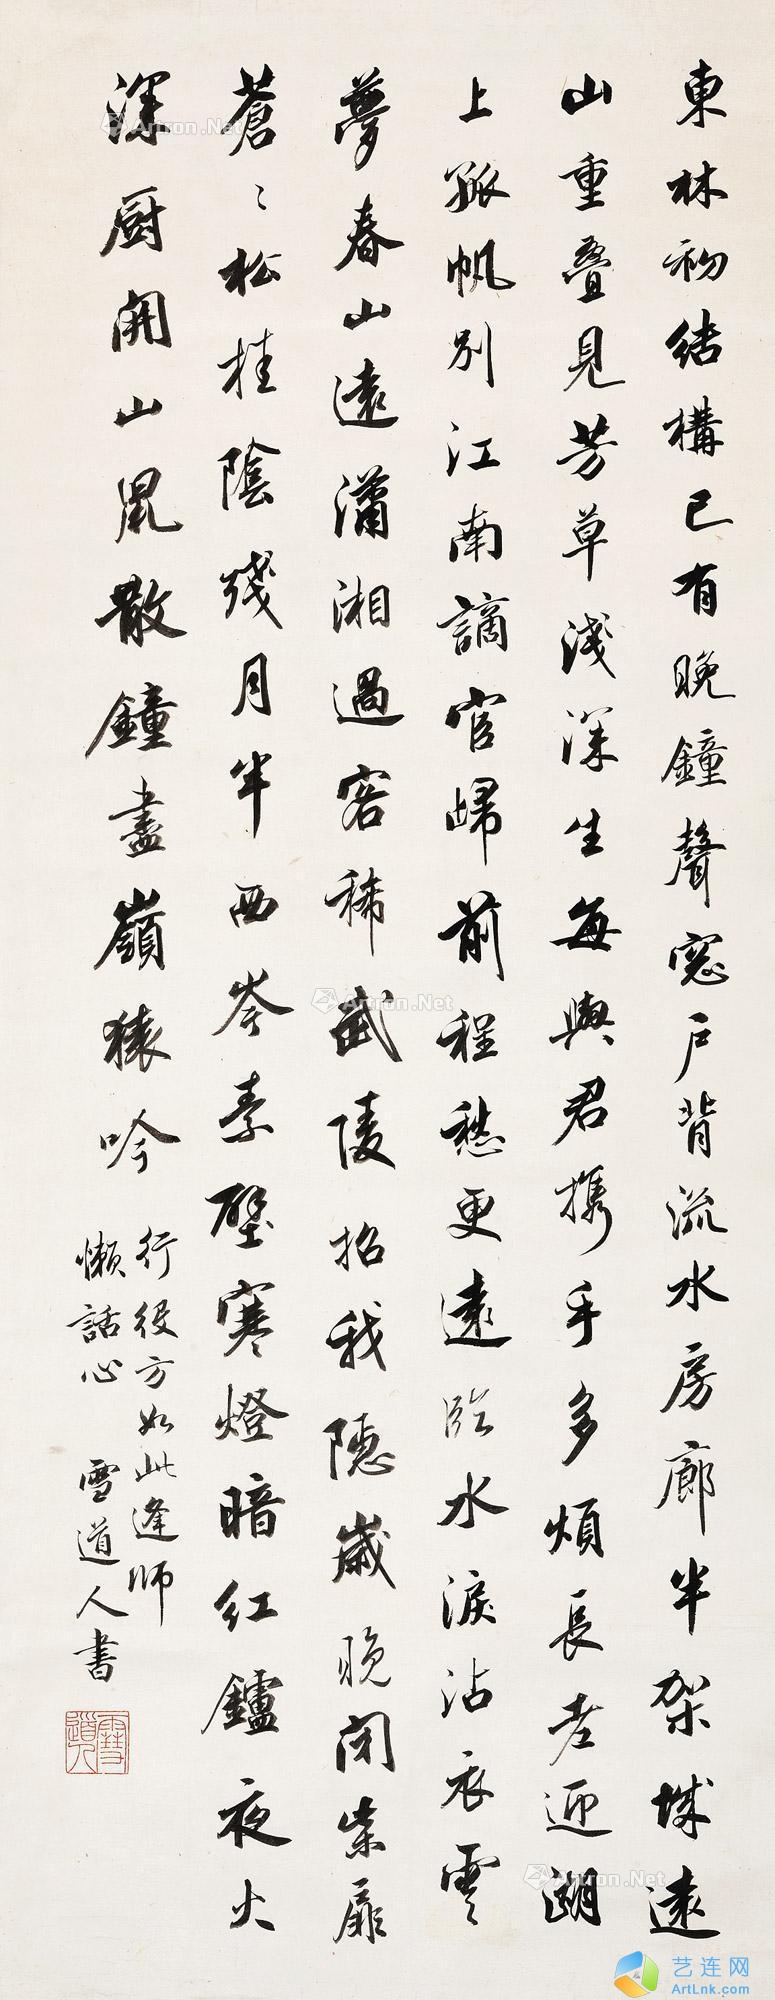 東林初結構已有晚鐘聲窓戶背流水房廊半架城遠
山重疊見芳草淺深生每與君携手多煩長老迎湖
上孤帆別江南謫官歸前程愁更遠臨水淚沾衣雲
夢春山遠瀟湘過客稀武陵招我隱歲晚閉柴扉
蒼〻松桂陰殘月半西岑素壁寒燈暗紅鑪夜火
深厨開山鼠散鐘盡嶺猿吟
行役方如此逢師
懶話心 雪道人書
雪道人
Artron.Net
Artron.Net
Artron.Net
Artron.Net
艺连网
ArtLnk.com